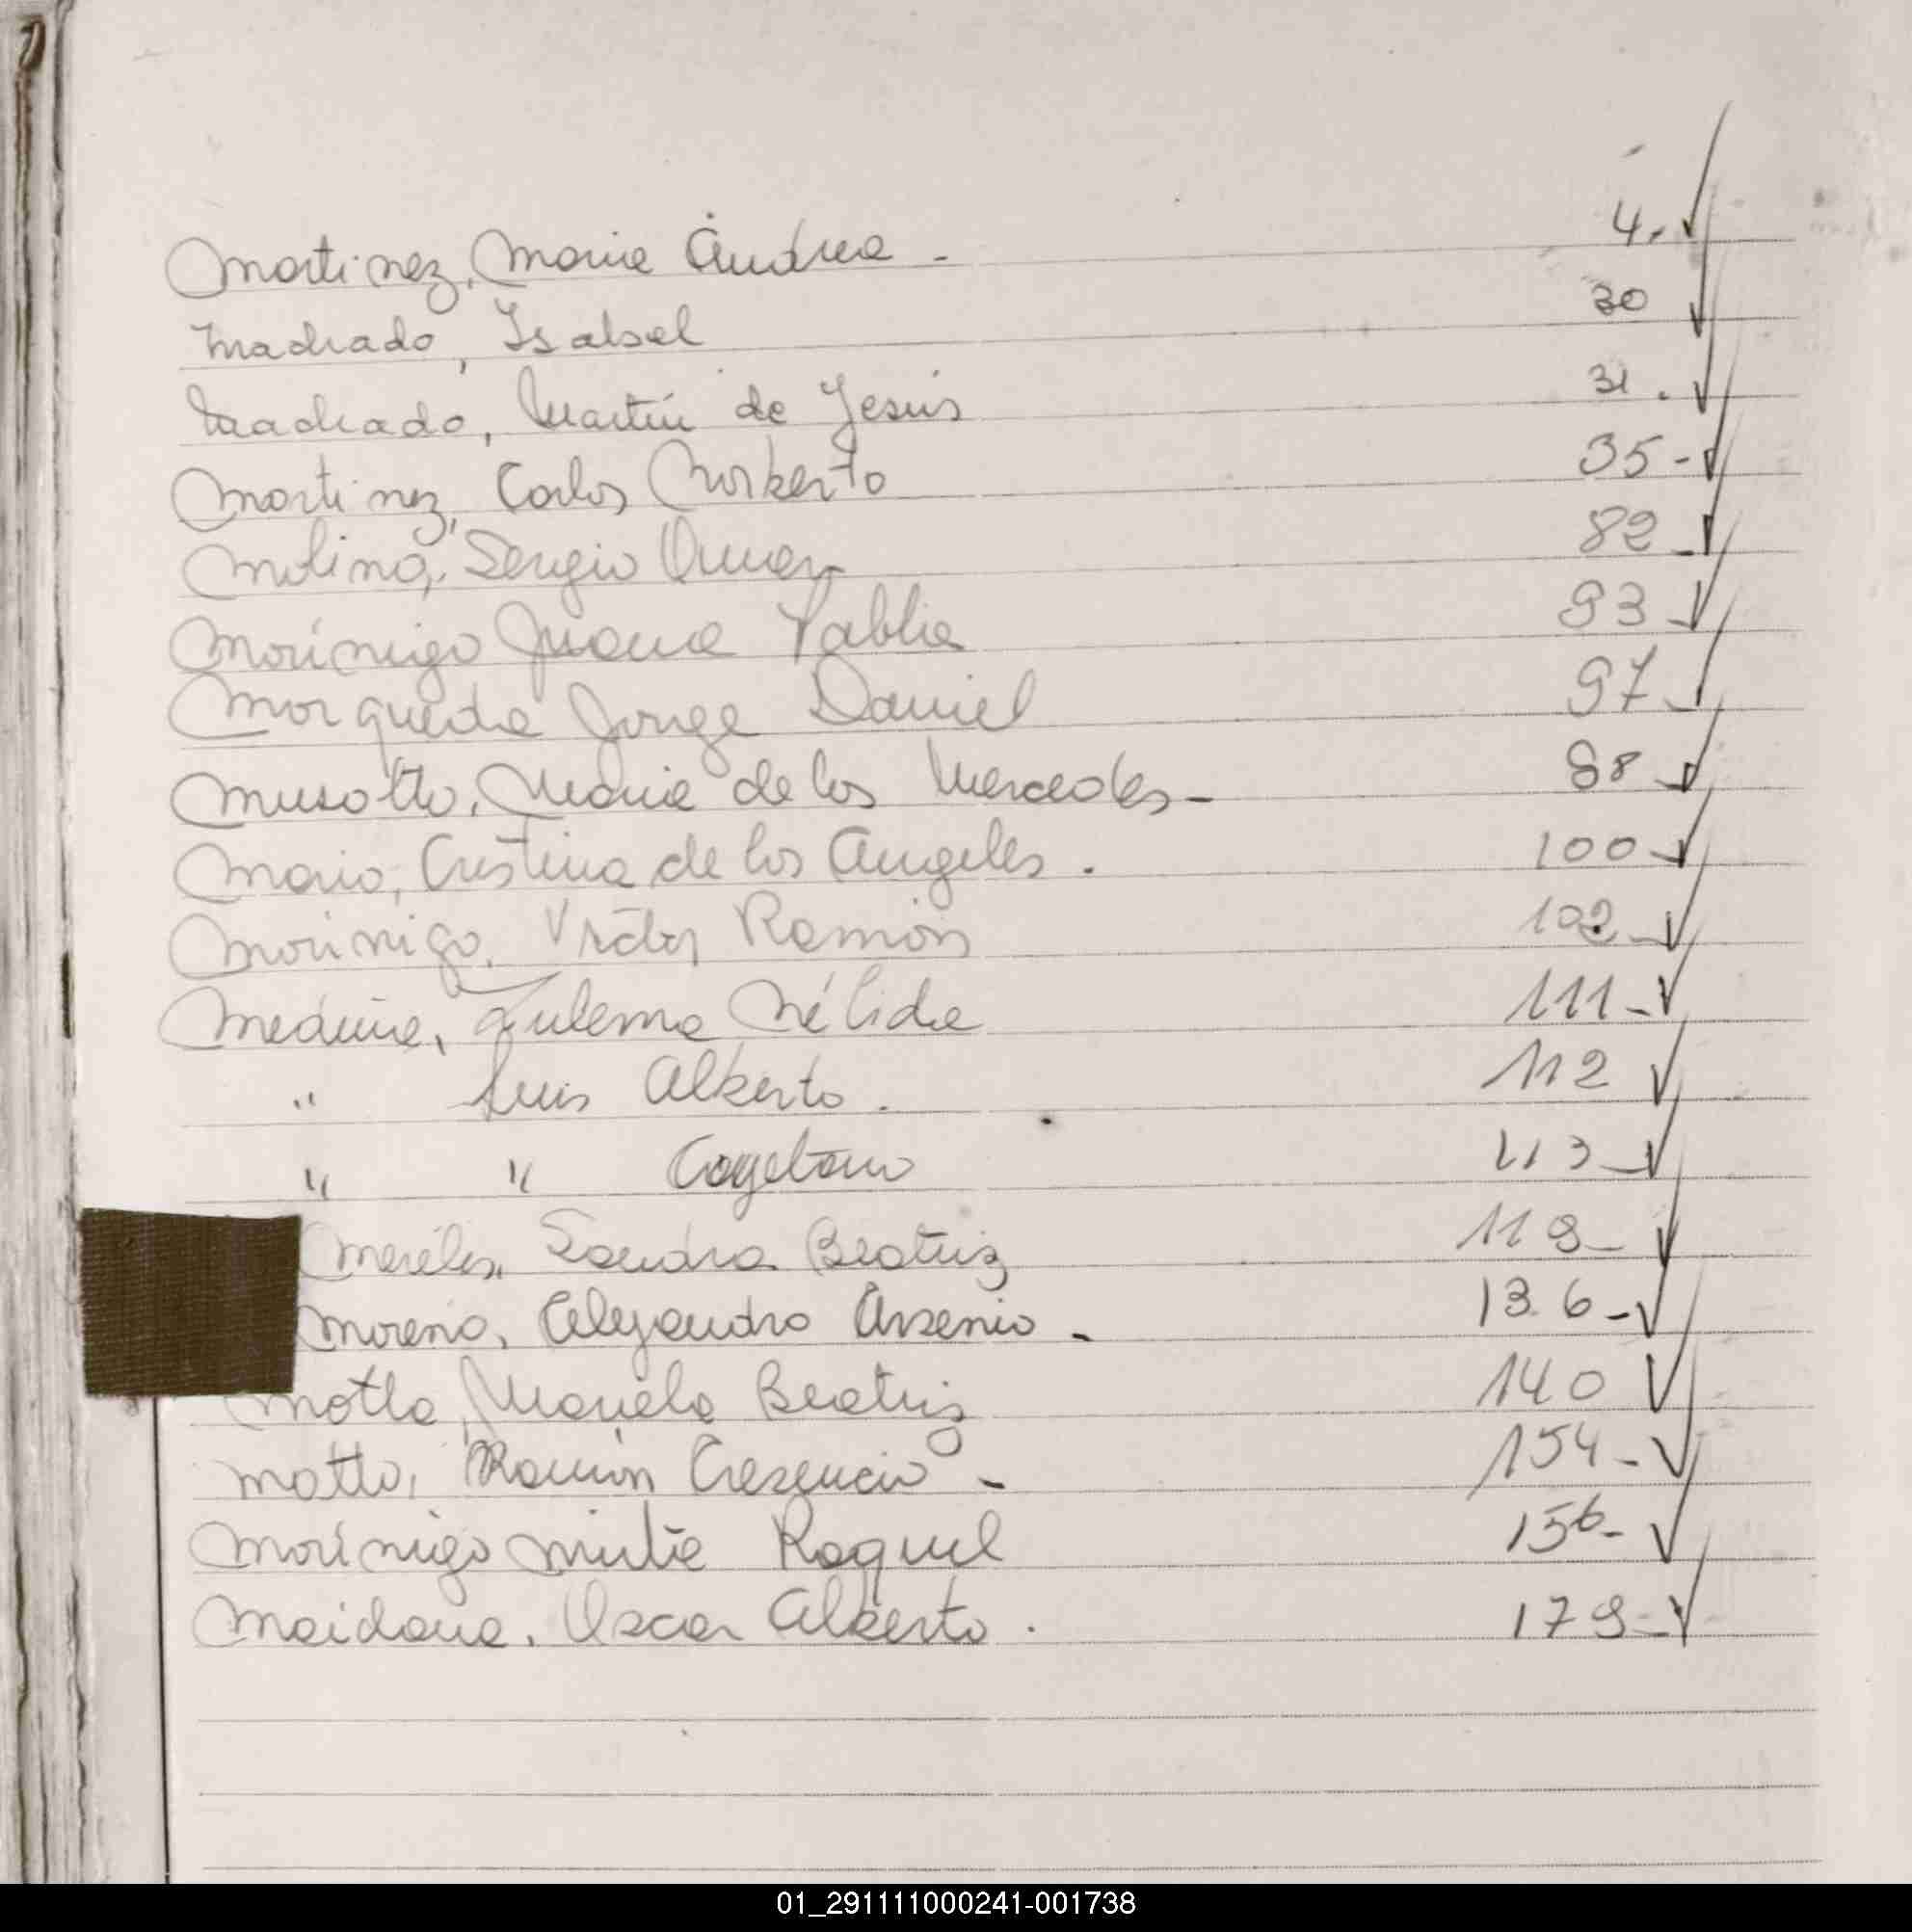 Martinez, Maria Andrea - 4.
Machado, Isabel 30
Machado, Martín de Jesús 31.
Martinez, Carlos Norberto 35-
Molina, Sergio Omar 82-
Morínigo Juana Pablia 93-
Morqueda Jorge Daniel 97-
Musotto, Maria de los Mercedes - 98-
Mario, Cristina de los Angeles. 100-
Morinigo, Victor Ramón 102-
Medina, Zulema Nélida 111-
" Luis Alberto. 112
" " Cayetano 113-
Mereles, Sandra Beatriz 119-
Moreno, Alejandro Arsenio - 136-
Motta, Mariela Beatriz 140
Motto, Ramón Cresencio - 154-
Morínigo Mirta Raquel 156-
Maidana, Oscar Alberto. 179-
01_291111000241-001738